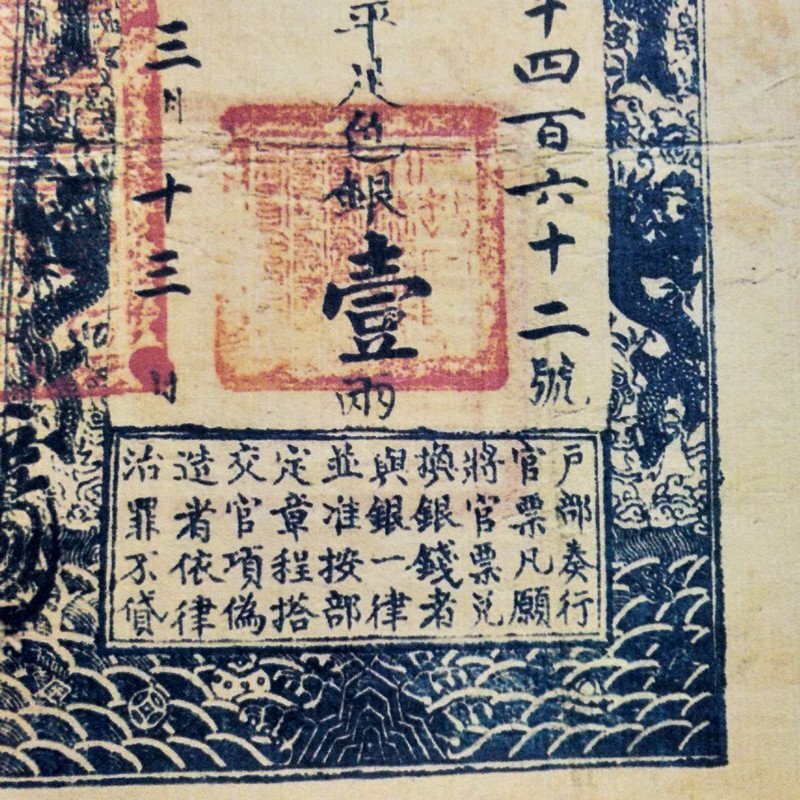 四百六十二號
平足色銀壹兩
三月十三日
戶部奏行
官票凡願
將官票兌
換銀錢者
與銀一律
並准按部
定章程搭
交官項偽
造者依律
治罪不貸